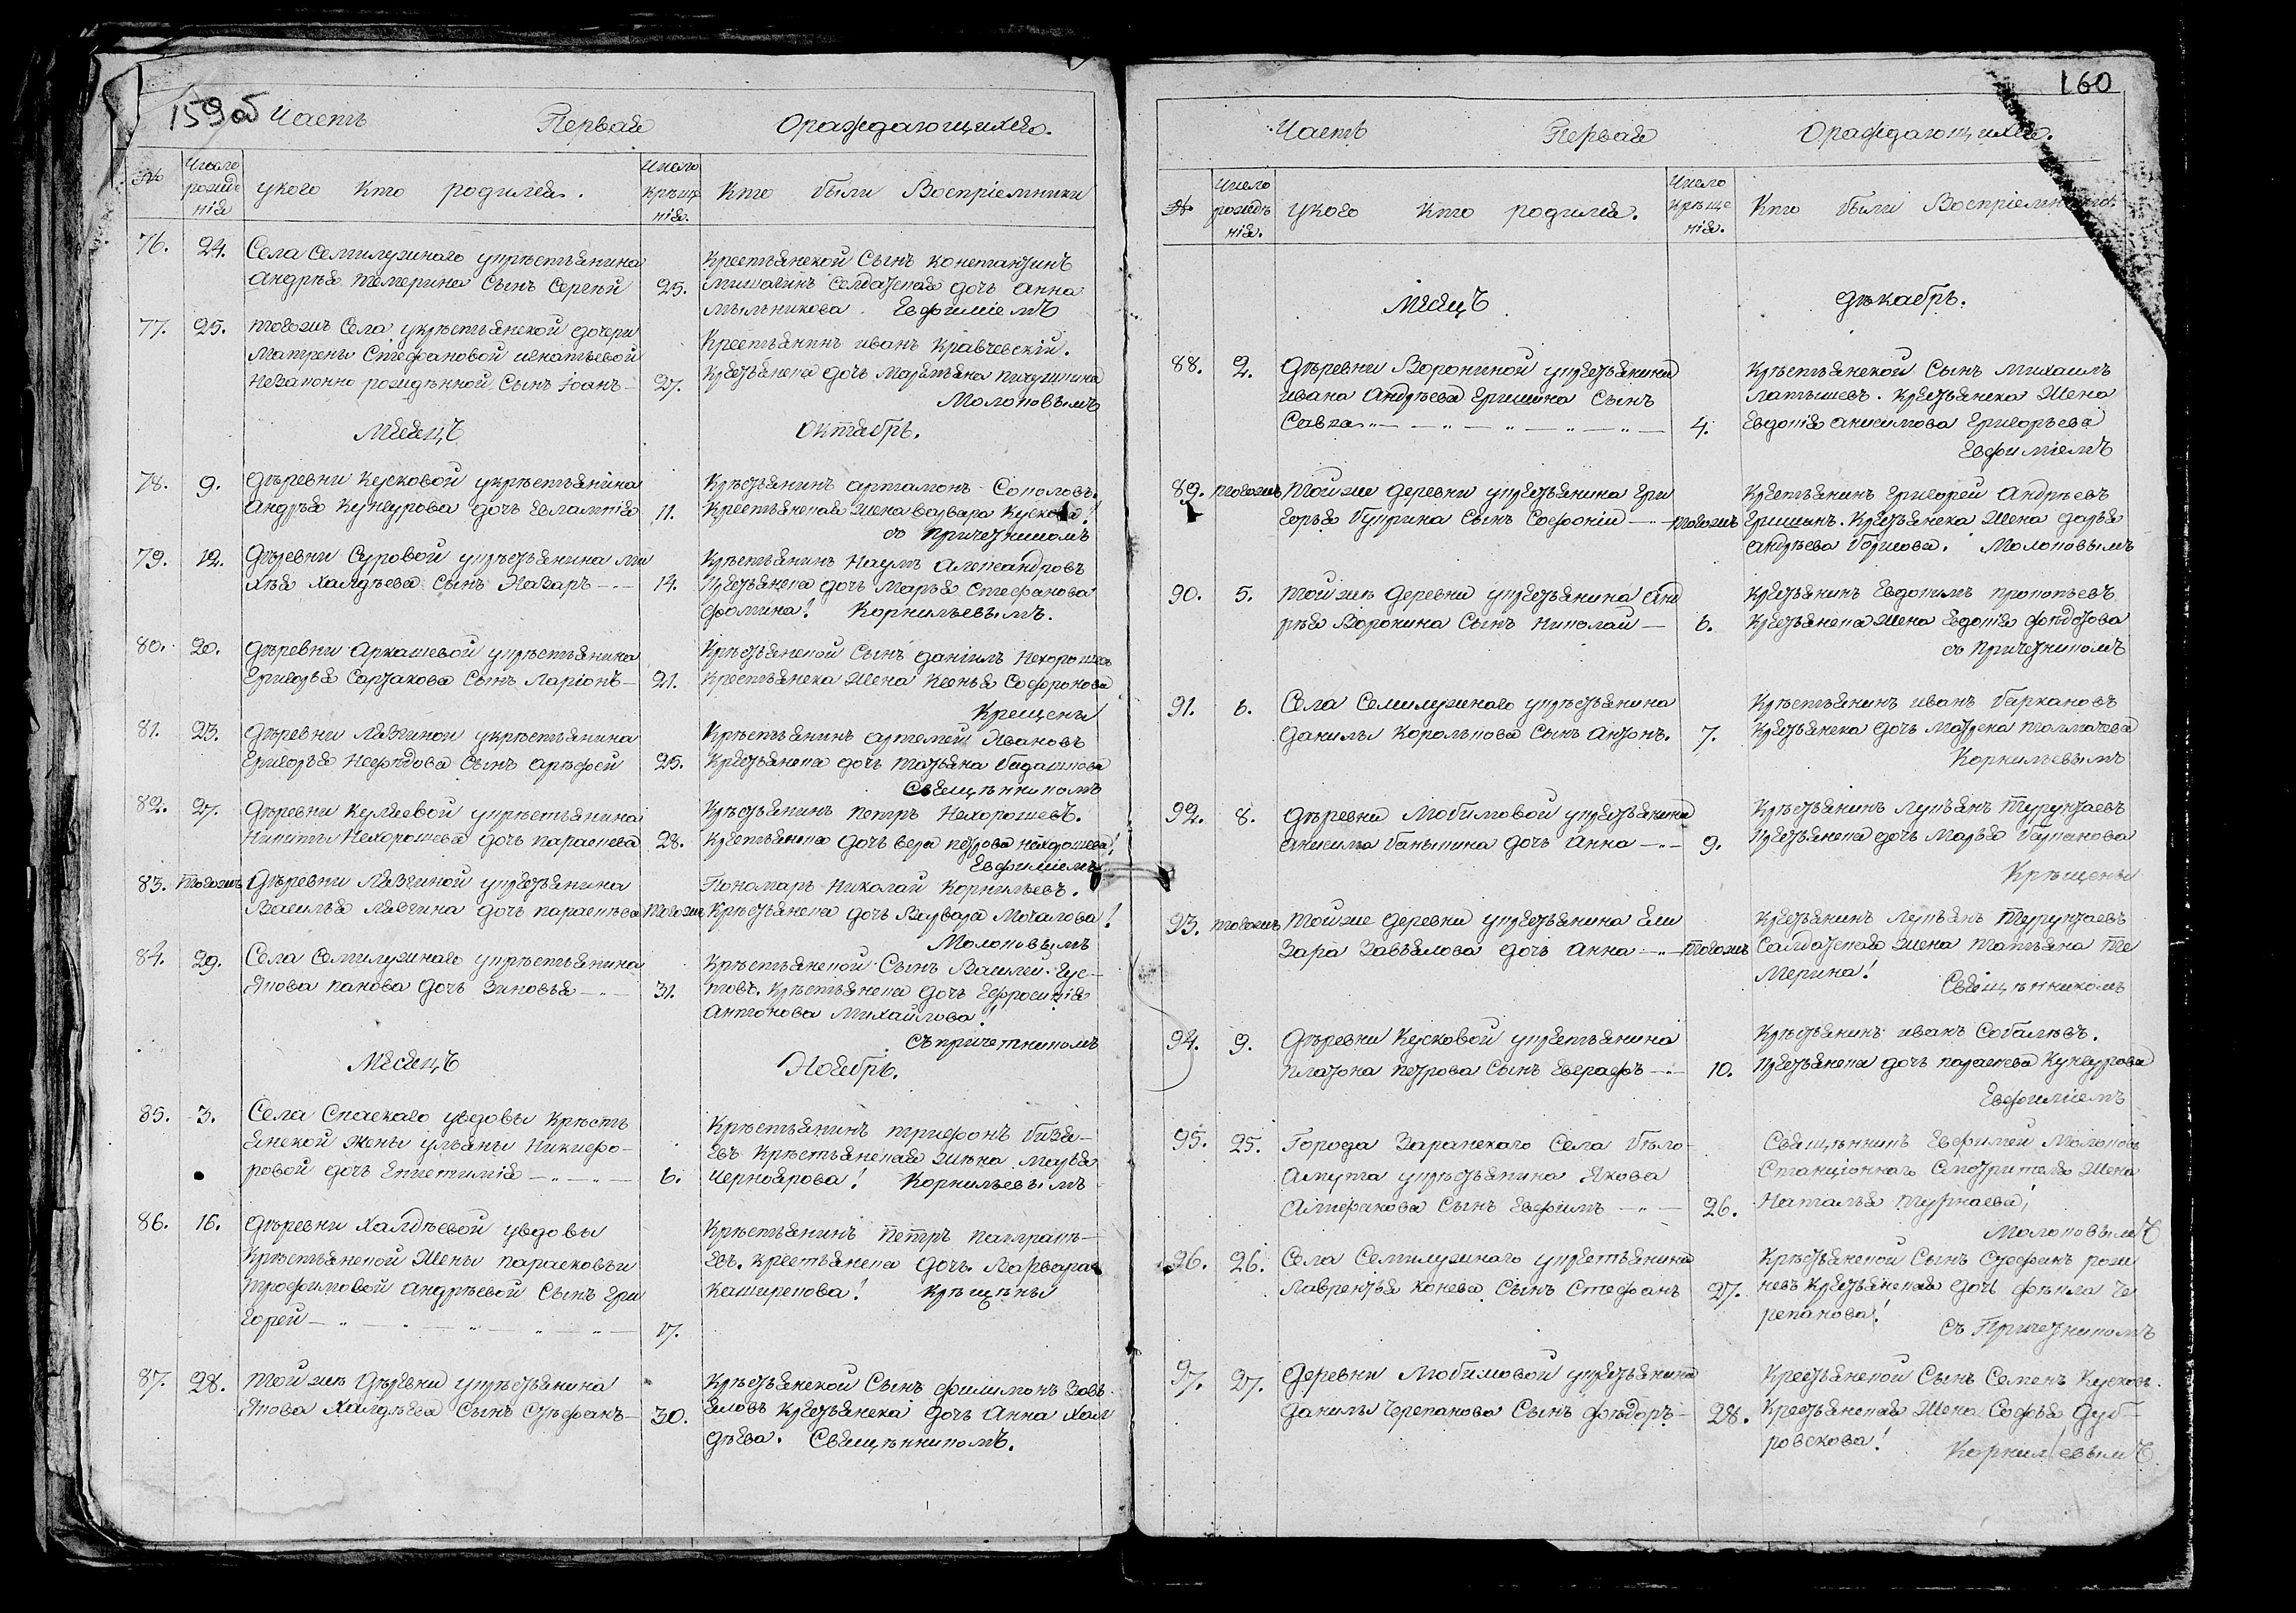 159об Часть Первая Ораждающихся.
№ Число рождѣнія укого Кто родился. Число крѣщенія. Кто были Воспріемники
76. 24. Села Семилужнаго укрѣстьянина
Андрѣя Темерина Сынъ Сергѣй 25.
Крестьянской Сынъ Константинъ
Мишагинъ Солдатская дочь Анна
Мѣльникова. Евфиміемъ
77. 25. Тогожъ Села укрѣстьянской дочери
Матрены Стефановой Игнатьевой
Незаконно рождѣнной Сынъ Іоанъ — 27.
Крестьянинъ иванъ Кравчевскій.
Молоковымъ
Мѣсяцъ Октябрь.
78. 9. Дѣревни Кусковой укрѣстьянина
Андрѣя Кунгурова дочь Евлампія 11.
Крѣстьянинъ артамонъ Соколовъ.
Крестьянская жена Варвара Кускова!
съ Причетникомъ
79. 12. Дѣревни Суровой укрѣстьянина Ми
хѣя Халдѣева Сынъ Назаръ — 14.
Крѣстьянинъ Наумъ Александровъ
Крестьянска дочь Марья Стефанова
Фомина! Корнильевымъ.
80. 20. Дѣревни Аркашевой укрѣстьянина
Григорья Сартакова Сынъ Ларіонъ — 21.
Крѣстьянской Сынъ Даніилъ Нехорошевъ
Крестьянска Жена Ксенья Софронова
Крещены
81. 23. Дѣревни Лязгиной укрѣстьянина
Григорья Нефѣдова Сынъ Арѣфей 25.
Крѣстьянинъ артемей Ивановъ
Крестьянска дочь татьяна
Свящѣнникомъ
82. 27. укрѣстьянина
Никиты Нехорошева дочь параскева 28.
Крѣстьянинъ петръ Нехорошевъ.
Крестьянска дочь вера петрова Нехорошева!
Евфиміемъ
83. Тогожъ Дѣревни Лязгиной укрестьянина
Василья Лязгина дочь параскева Тогожъ
Пономарь Николай Корнильевъ.
Крѣстьянска дочь Варвара Мочалова!
Молоковымъ
84. 29. Села Семилужнаго укрѣстьянина
Якова панова дочь Зиновья — 31.
Крѣстьянской Сынъ Василей Гус-
ковъ. Крѣстьянска дочь Ефросинія
Антонова Михайлова!
съ причетникомъ
Мѣсяцъ Ноябрь.
85. 3. Села Спаскаго увдовы Крѣсть
янской жены ульяны Никифо-
ровой дочь Епистимія — 6.
Крѣстьянинъ трифонъ
евъ. Крѣстьянская жѣна Марья
Черноярова! Корнильевымъ
86. 16. Дѣревни Халдѣевой увдовы
Крѣстьянской Жены парасковьи
трофимовой андрѣевой Сынъ Гри
горей — 17.
Крѣстьянинъ Петръ
евъ. Крестьянска дочь Варвара
Каширекова! Крѣщѣны
87. 28. Тойже Дѣревни укрѣстьянина
Якова Халдѣева Сынъ Стѣфанъ — 30.
Крѣстьянской Сынъ филимонъ Завь
яловъ Крестьянска дочь Анна Хал
дѣева. Свящѣнникомъ.
160
Часть Первая Ораждающихся.
№ Число рождѣнія. укого Кто родился. Число Крѣщенія. Кто были Воспріемники
Мѣсяцъ Дѣкабрь.
88. 2. Дѣревни Ворониной укрестьянина
ивана Андрѣева Гришина Сынъ
Савва — 4.
Крѣстьянской Сынъ Михаилъ
Латышевъ. Крестьянска Жена
Евдокія Анисимова Григорьева
Евфиміемъ
89. Тогожъ Тойже деревни укрестьянина Гри
горья Куприна Сынъ Софоній — Тогожъ
Крестьянинъ Григорей Андрѣевъ
Гришинъ. Крестьянска Жена дарья
Андрѣева Молоковымъ
90. 5. Тойже деревни укрестьянина Анд
рѣя Воронина Сынъ Николай — 6.
Крестьянинъ Евдокимъ прокопьевъ
Крестьянска Жена Евдокія
съ Причетникомъ
91. 6. Села Семилужнаго укрѣстьянина
Данилы Королькова Сынъ Антонъ. 7.
Крѣстьянинъ иванъ
Крестьянска дочь Матрена Толмачева
Корнильевымъ
92. 8. Дѣревни Любимовой укрестьянина
Анисима дочь Анна — 9.
Крѣстьянинъ Лукьянъ Турунтаевъ
Крестьянска дочь Марья
Крѣщены
93. Тогожъ Тойже деревни укрестьянина Ели
зара Завьялова дочь Анна — Тогожъ
Крестьянинъ Лукьянъ Турунтаевъ
Салдатская жена татьяна Те
мерина! Свящѣнникомъ
94. 9. Дѣревни Кусковой укрестьянина
платона петрова Сынъ Евграфъ — 10.
Крѣстьянинъ иванъ Соболевъ.
Крестьянска дочь параскева Кунгурова
Евфиміемъ
95. 25. Города Зарайскаго Села Бѣло-
Омута укрѣстьянина Якова
Сынъ Евфимъ — 26.
Свящѣнникъ Евфимей Молоковъ
Станціоннаго Смотрителя Жена
Наталья
Молоковымъ
96. 26. Села Семилужнаго укрестьянина
Лаврентья Конева Сынъ Стефанъ 27.
Крѣстьянской Сынъ Стефанъ
невъ Крестьянская дочь Фѣкла Че
репанова! съ Причетникомъ
97. 27. Деревни Любимовой укрестьянина
Данилы Черепанова Сынъ Фѣдоръ — 28.
Крестьянской Сынъ Семенъ Кусковъ.
Крестьянская Жена Софья Дуб-
ровскова! Корнильевымъ